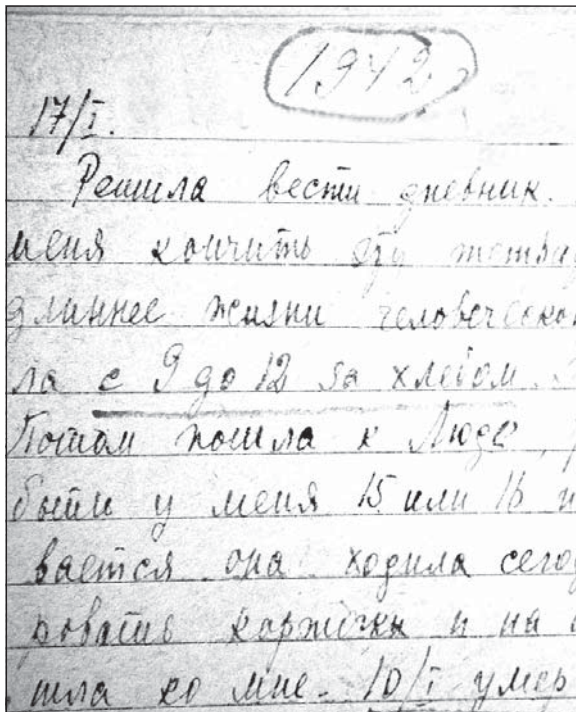 1942
17/I.
Решила вести дневник.
меня кончить эту тетрад
длиннее жизни человеческой
ла с 9 до 12 за хлебом.
Потом пошла к Люде,
быть у меня 15 или 16
вается она ходила сегод
ровать коржики и на
шла ко мне. 10/I умер